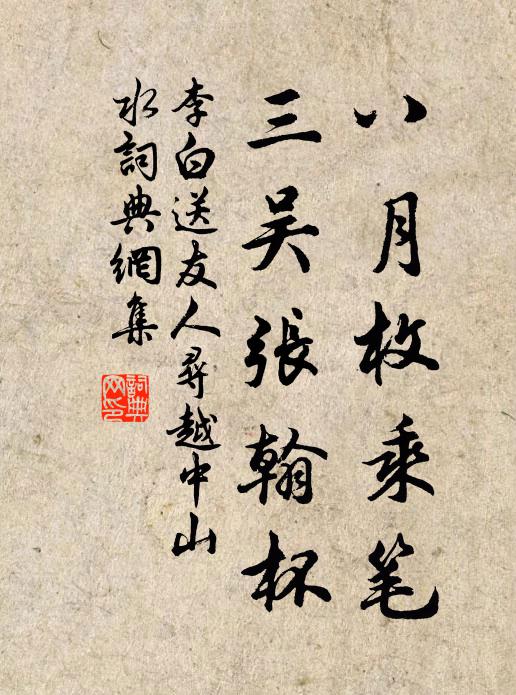 八月枚乘笔
三吴張翰杯
李白送友人尋越中山
水詞典網集
詞典
网印